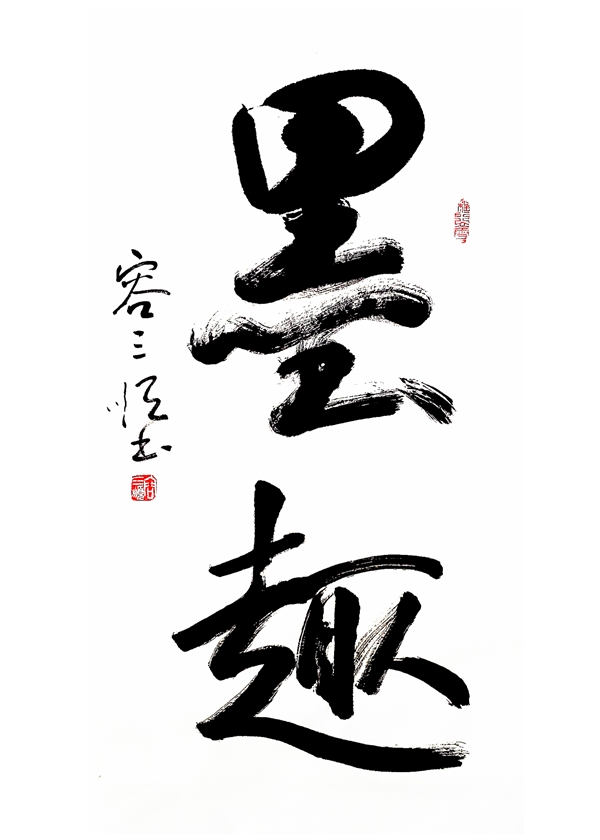 墨趣
容三恒书